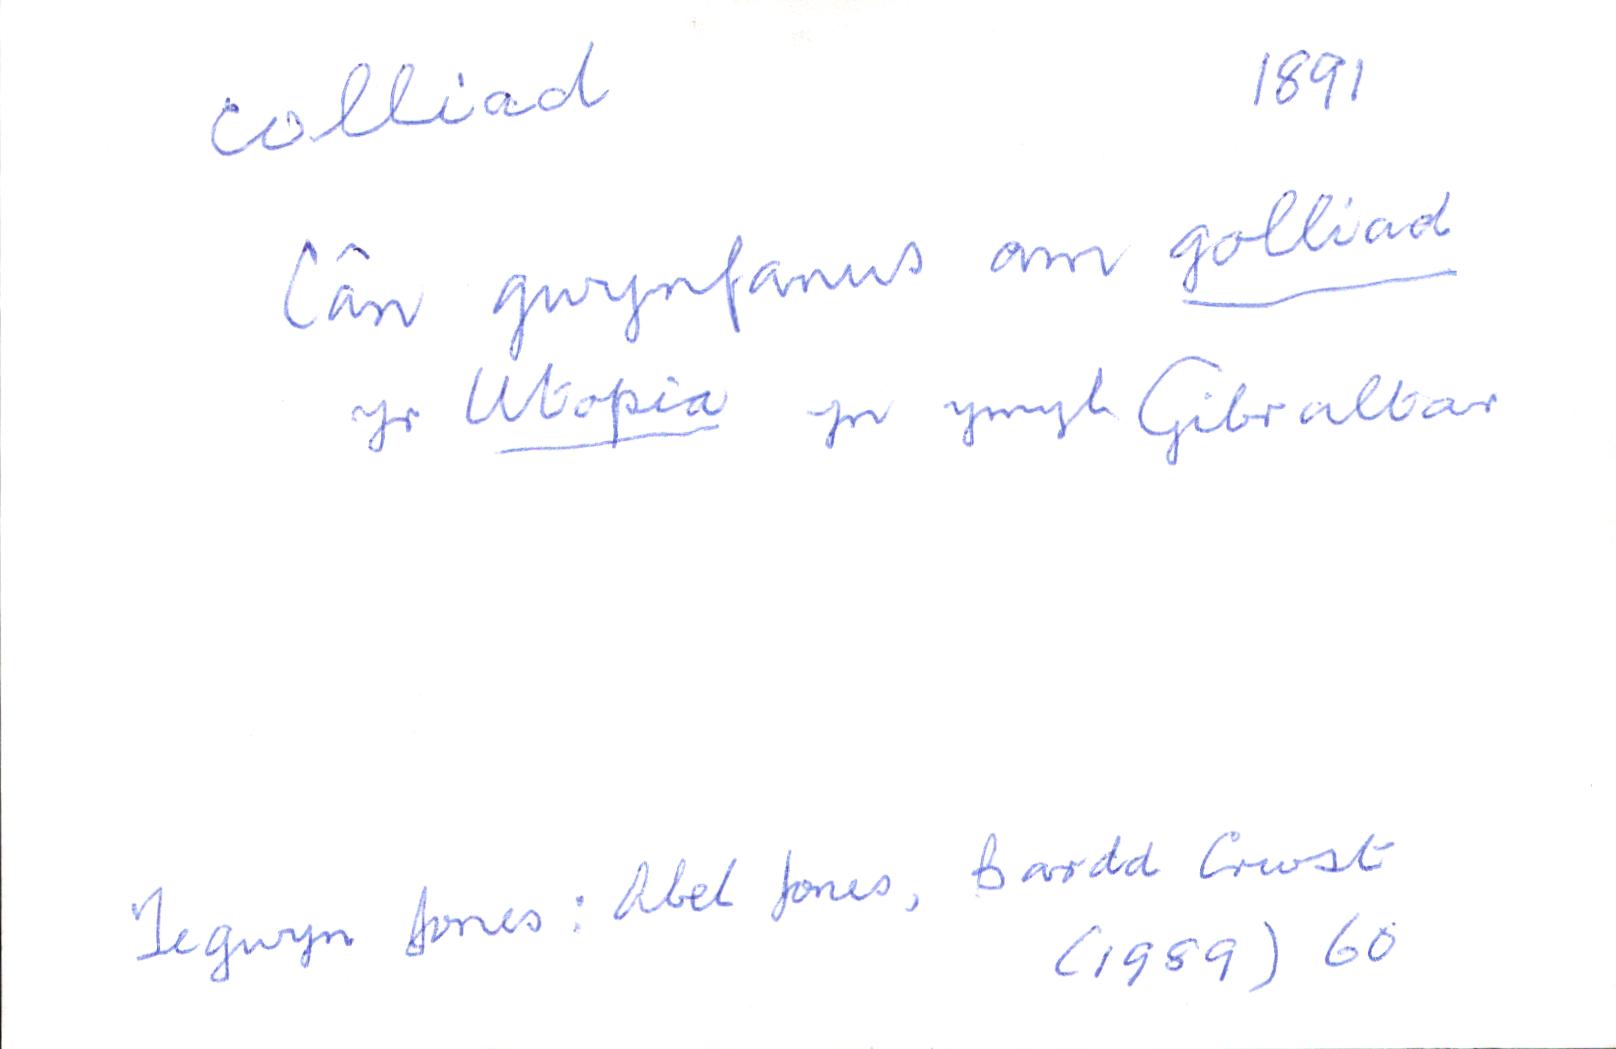 colliad 1891
Cân gwynfanus am golliad
yr Utopia yn ymyl Gibraltar
Tegwyn Jones: Abel Jones, Bardd Crwst
(1989) 60